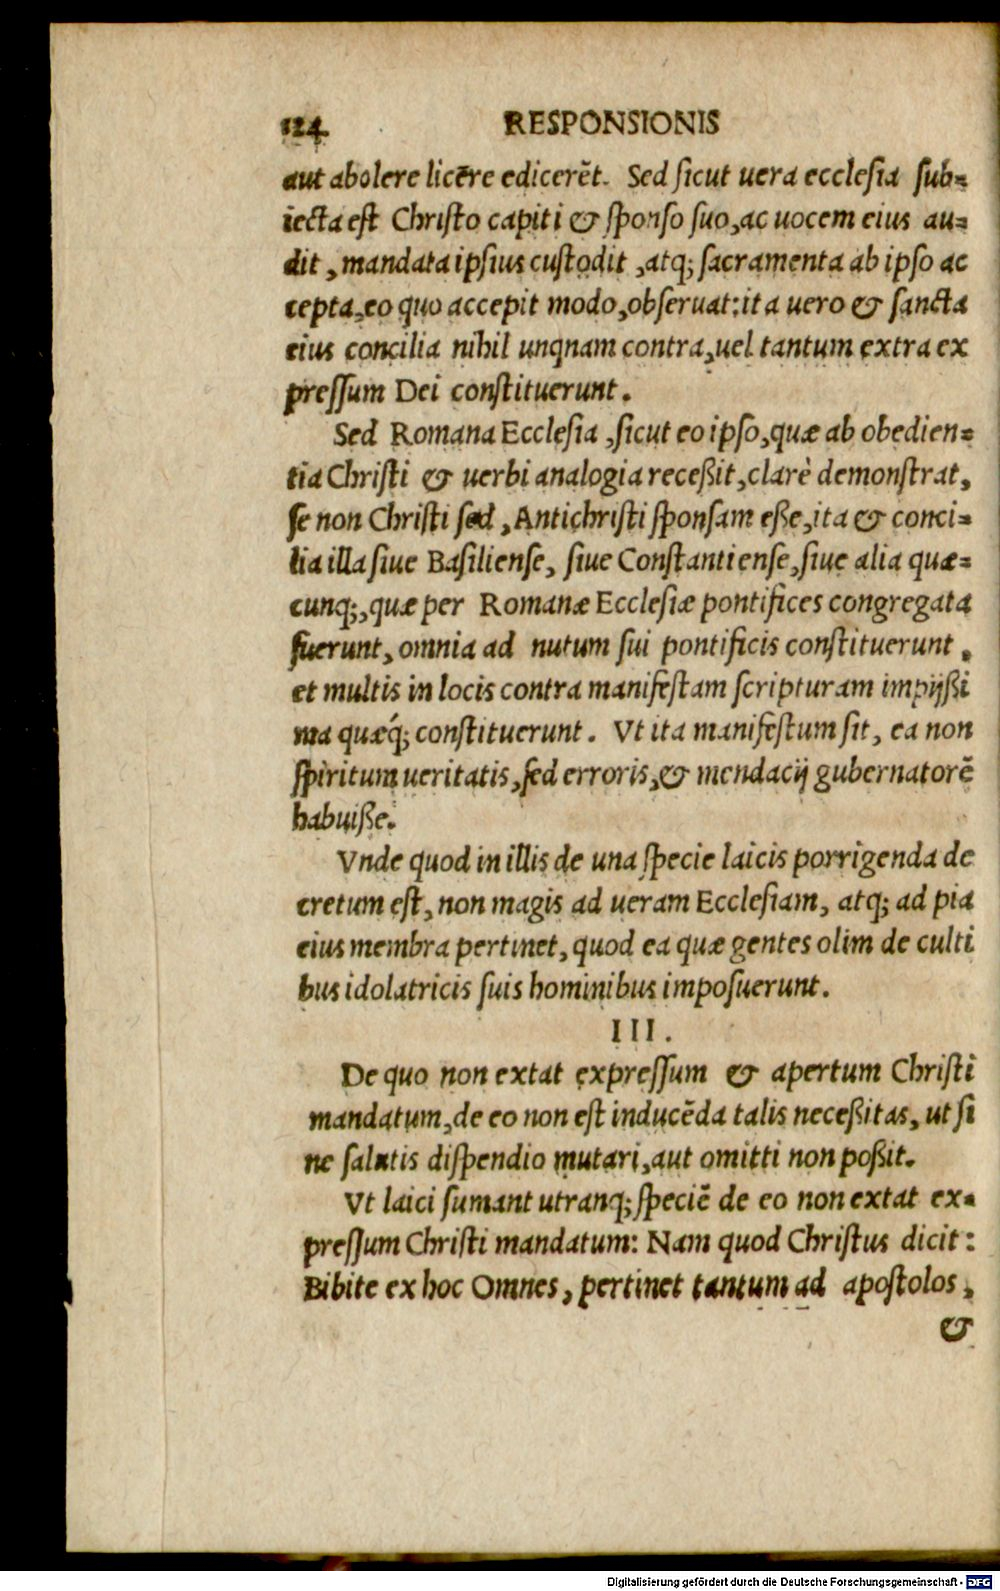 124 RESPONSIONIS
aut abolere licēre edicerēt. Sed sicut uera ecclesia sub-
iecta est Christo capiti & sponso suo, ac uocem eius au-
dit, mandata ipsius custodit, atq; sacramenta ab ipso ac
cepta, eo quo accepit modo, obseruat: ita uero & sancta
eius concilia nihil unqnam contra, uel tantum extra ex
pressum Dei constituerunt.
Sed Romana Ecclesia, sicut eo ipso, quæ ab obedien-
tia Christi & uerbi analogia receßit, clarè demonstrat,
se non Christi sed, Antichristi sponsam eße, ita & conci-
lia illa siue Basiliense, siue Constantiense, siue alia quæ-
cunq;, quæ per Romanæ Ecclesiæ pontifices congregata
fuerunt, omnia ad nutum sui pontificis constituerunt,
et multis in locis contra manifestam scripturam impijßi
ma quæq́; constituerunt. Vt ita manifestum sit, ea non
spiritum ueritatis, sed erroris, & mendacij gubernatorē
habuiße.
Vnde quod in illis de una specie laicis porrigenda de
cretum est, non magis ad ueram Ecclesiam, atq; ad pia
eius membra pertinet, quod ea quæ gentes olim de culti
bus idolatricis suis hominibus imposuerunt.
III.
De quo non extat expressum & apertum Christi
mandatum, de eo non est inducēda talis neceßitas, ut si
ne salutis dispendio mutari, aut omitti non poßit.
Vt laici sumant utranq; speciē de eo non extat ex-
pressum Christi mandatum: Nam quod Christus dicit:
Bibite ex hoc Omnes, pertinet tantum ad apostolos,
&
Digitalisierung gefördert durch die Deutsche Forschungsgemeinschaft - DFG